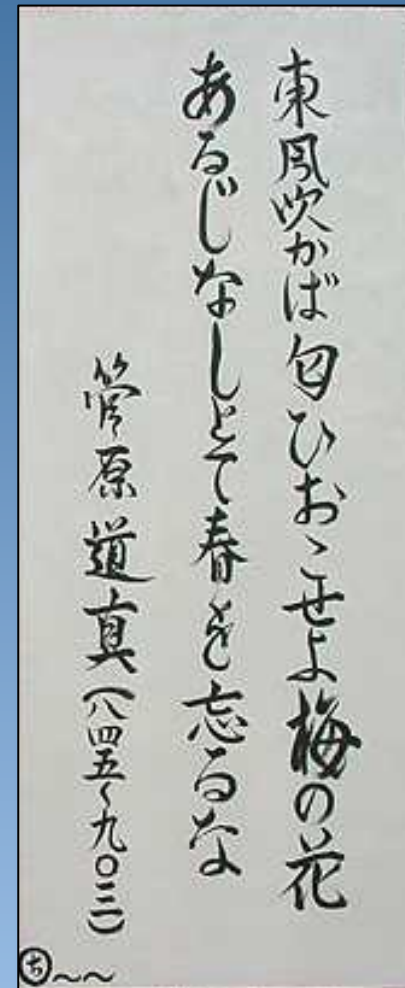 東風吹かば匂ひおこせよ梅の花
あるじなしとて春を忘るな
菅原道真(八四五〜九〇三)
ち